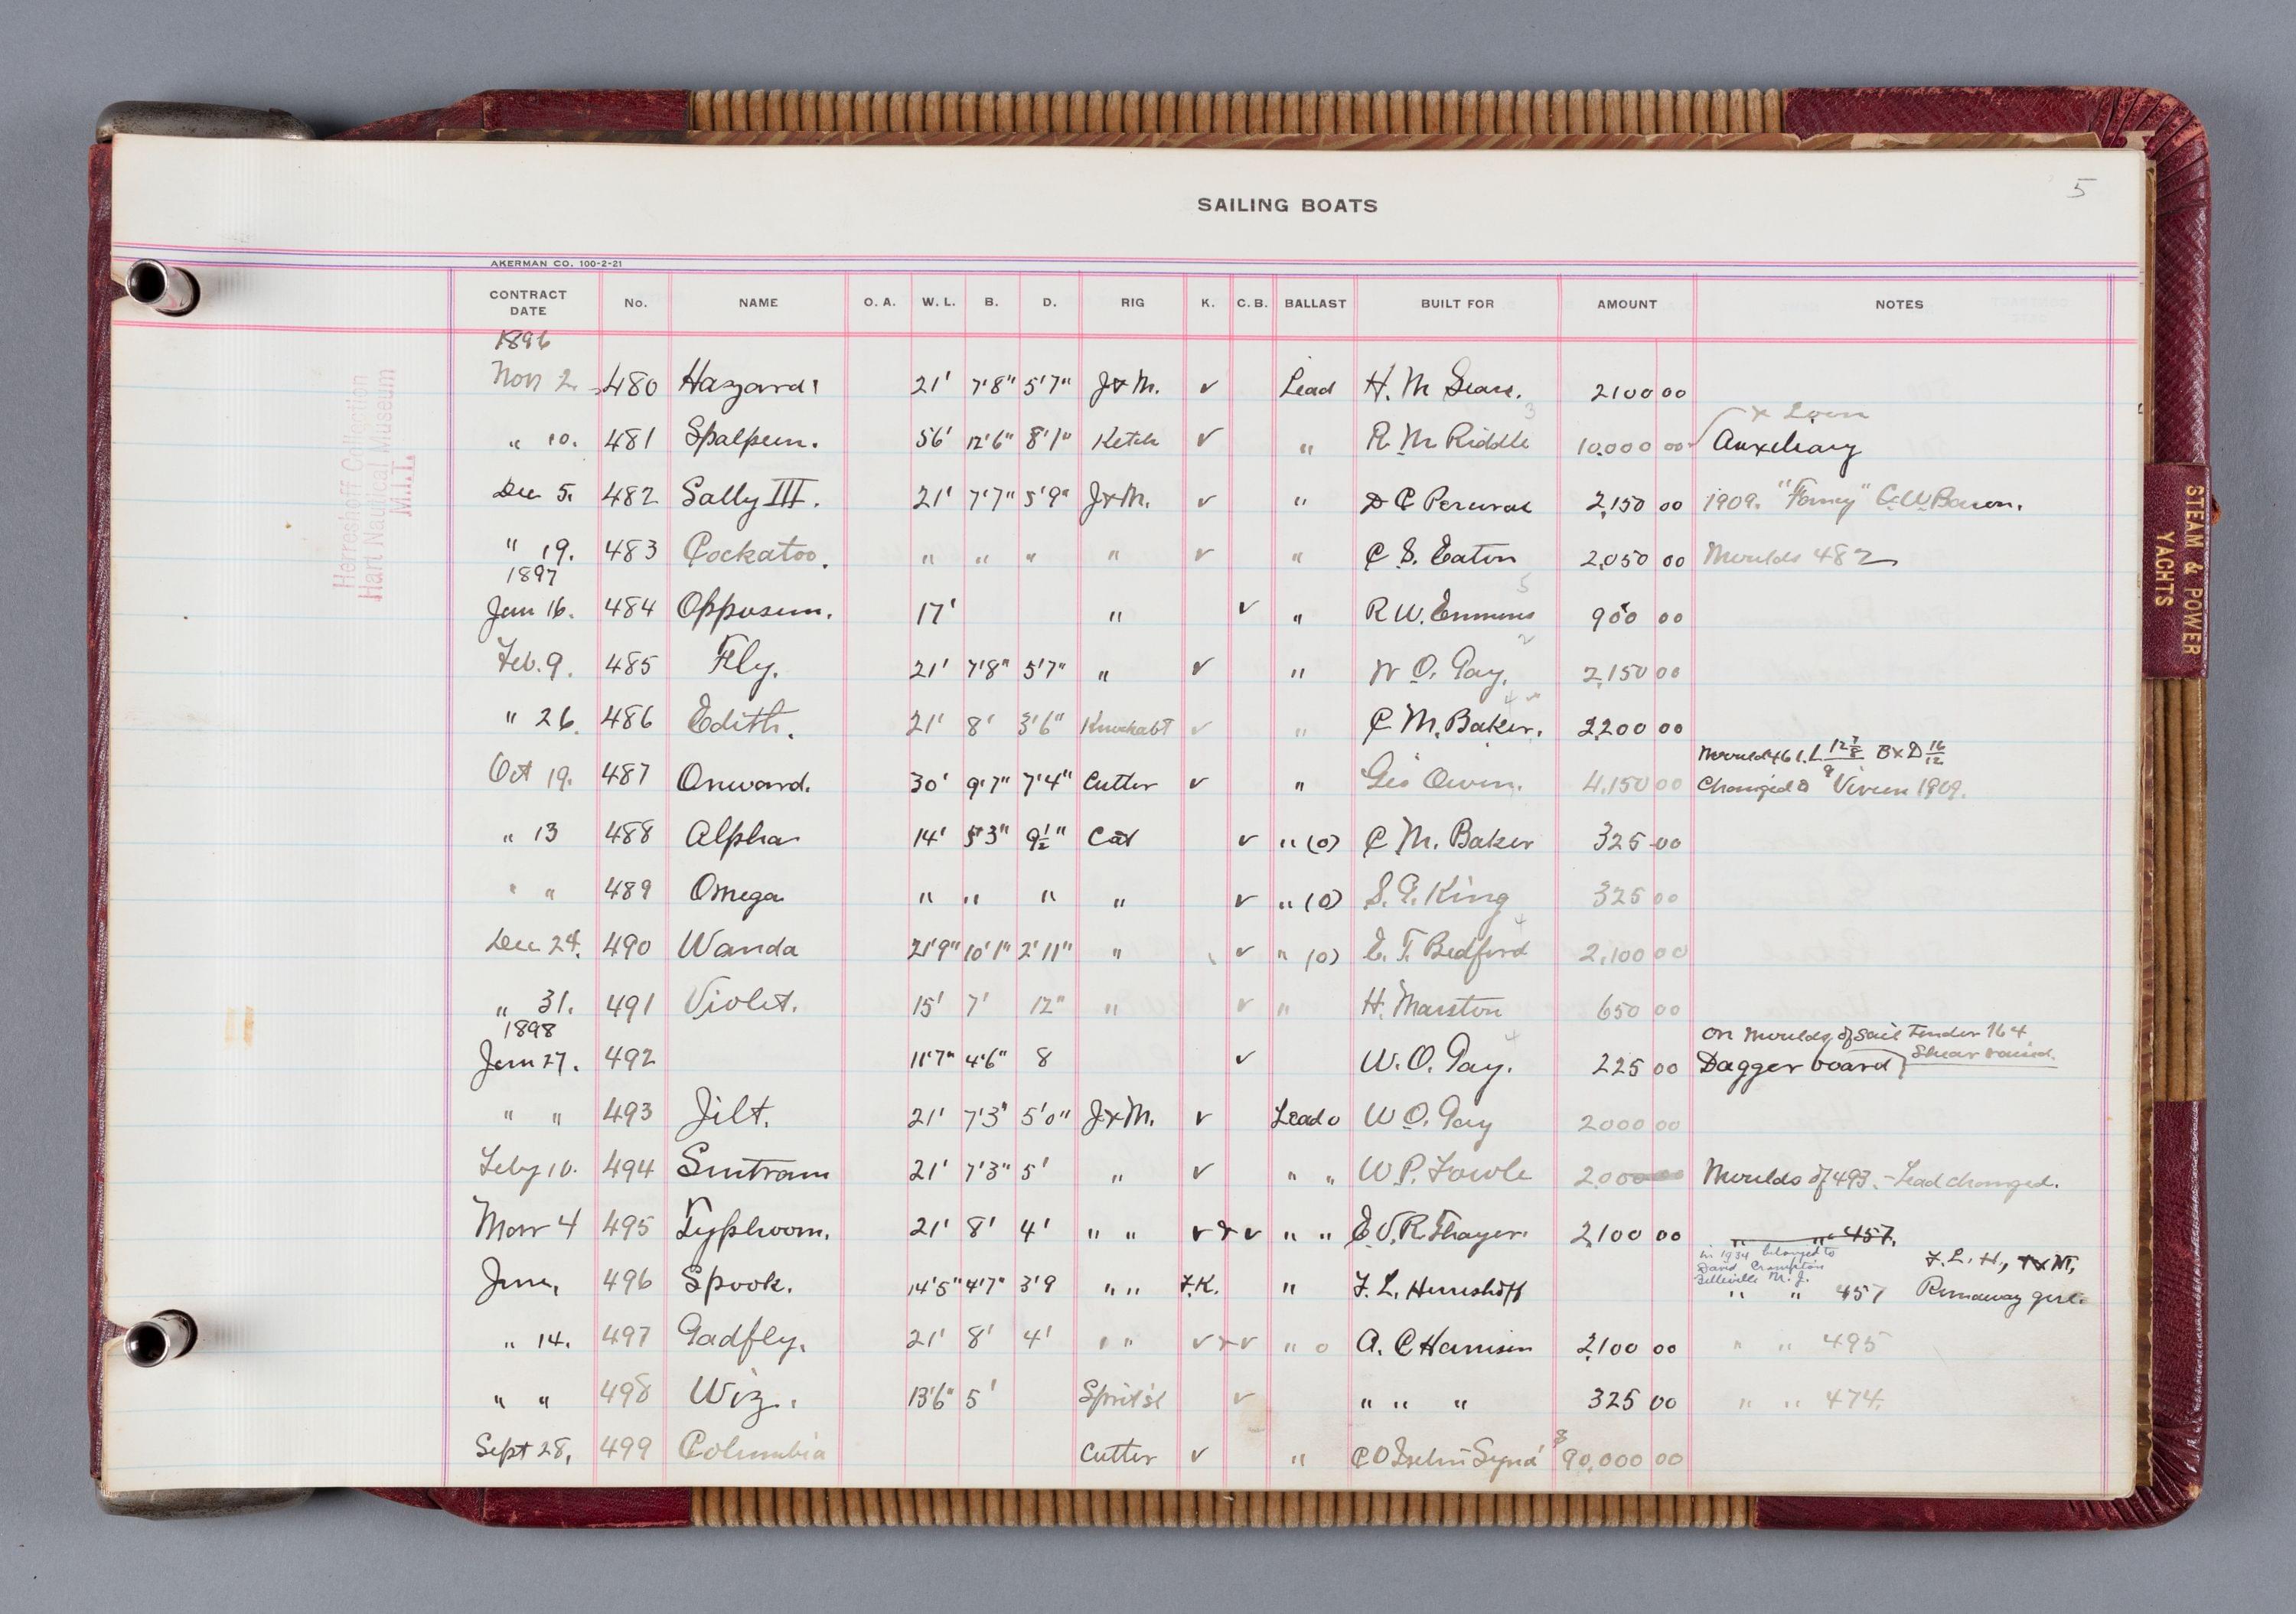 5
SAILING BOATS
AKERMAN CO. 100-2-21
CONTRACT DATE No. NAME O. A. W. L. B. D. RIG K. C. B. BALLAST BUILT FOR AMOUNT NOTES
1896
Nov 2. 480 Hazard. 21' 7'8" 5'7" J&M. v Lead H. M Sears. 2100 00
" 10. 481 Spalpeen. 56' 12'6" 8'1" Ketch v " R. M. Riddle 10,000 00 x Loon Auxiliary
Dec 5. 482 Sally III. 21' 7'7" 5'9" J&M. v " D C Percival 2,150 00 1909. C. W. Bacon.
" 19. 483 Cockatoo. " " " " v " C S. Eaton 2,050 00 Moulds 482
1897
Jan 16. 484 Opposum. 17' " v " R W. Emmons 900 00
Feb. 9. 485 Fly. 21' 7'8" 5'7" " v " W O. Gay. 2,150 00
" 26. 486 Edith. 21' 8' 3'6" Knockabt v " C M. Baker. 2,200 00
Oct 19. 487 Onward. 30' 9'7" 7'4" Cutter v " Geo Owen. 4,150 00 Changed Vivien 1909.
" 13 488 Alpha 14' 5'3" 9½" Cat v " (0) C M. Baker 325 00
" " 489 Omega " " " " v " (0) S. G. King 325 00
Dec 24. 490 Wanda 21'9" 10'1" 2'11" " v " (0) E. T. Bedford 2,100 00
" 31. 491 Violet. 15' 7' 12" " v " H. Marston 650 00
1898
On Moulds of Sail Tender 164
Jan 27. 492 11'7" 4'6" 8 v W. O. Gay. 225 00 Dagger board Shear raised.
" " 493 Jilt. 21' 7'3" 5'0" J&M. v Lead o W O. Gay 2000 00
Feby 10. 494 Sintram 21' 7'3" 5' " v " " W. P. Fowle 2,000 Moulds of 493. - Lead changed.
Mar 4 495 Typhoon. 21' 8' 4' " " v & v " " E. V. R. Thayer. 2,100 00 " " 457.
in 1934 belonged to
David Crompton
Belleville N. J.
F. L. H.,
June, 496 Spook. 14'5" 4'7" 3'9 " " F.K. " F. L. Herreshoff " " 457 Runaway girl.
" 14. 497 Gadfly. 21' 8' 4' " " v & v " o A. C Harrison 2,100 00 " " 495
" " 498 Wiz. 13'6" 5' Sprits'l v " " " 325 00 " " 474.
Sept 28, 499 Columbia Cutter v " C O Iselin Synd' $90,000 00
Herreshoff Collection
Hart Nautical Museum
M.I.T.
STEAM & POWER
YACHTS